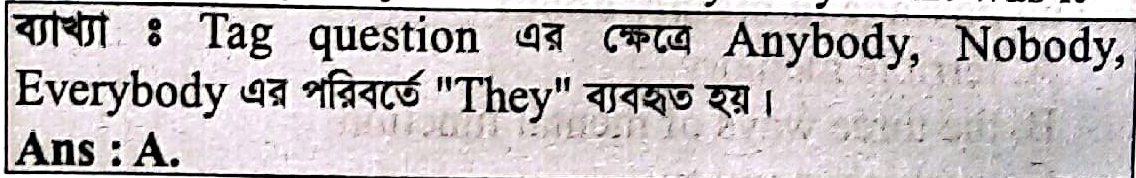 ব্যাখ্যা ঃ Tag question এর ক্ষেত্রে Anybody, Nobody,
Everybody এর পরিবর্তে "They" ব্যবহৃত হয়।
Ans : A.